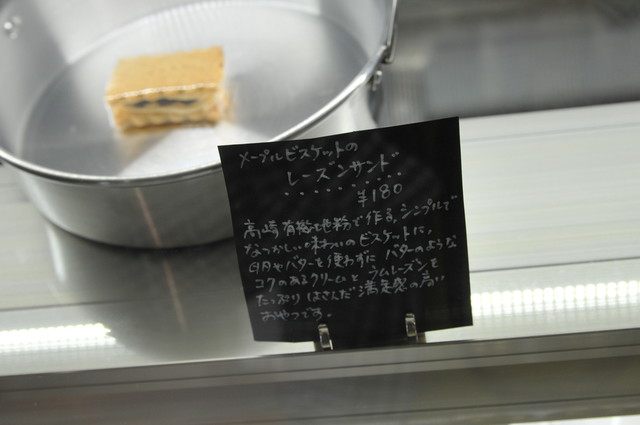 メープルビスケットの
レーズンサンド
¥180
高崎有機地粉で作る、シンプルで
なつかしい味わいのビスケットに、
卵やバターを使わずに バターのような
コクのあるクリームと、ラムレーズンを
たっぷり はさんだ 満足感の高い
おやつです。